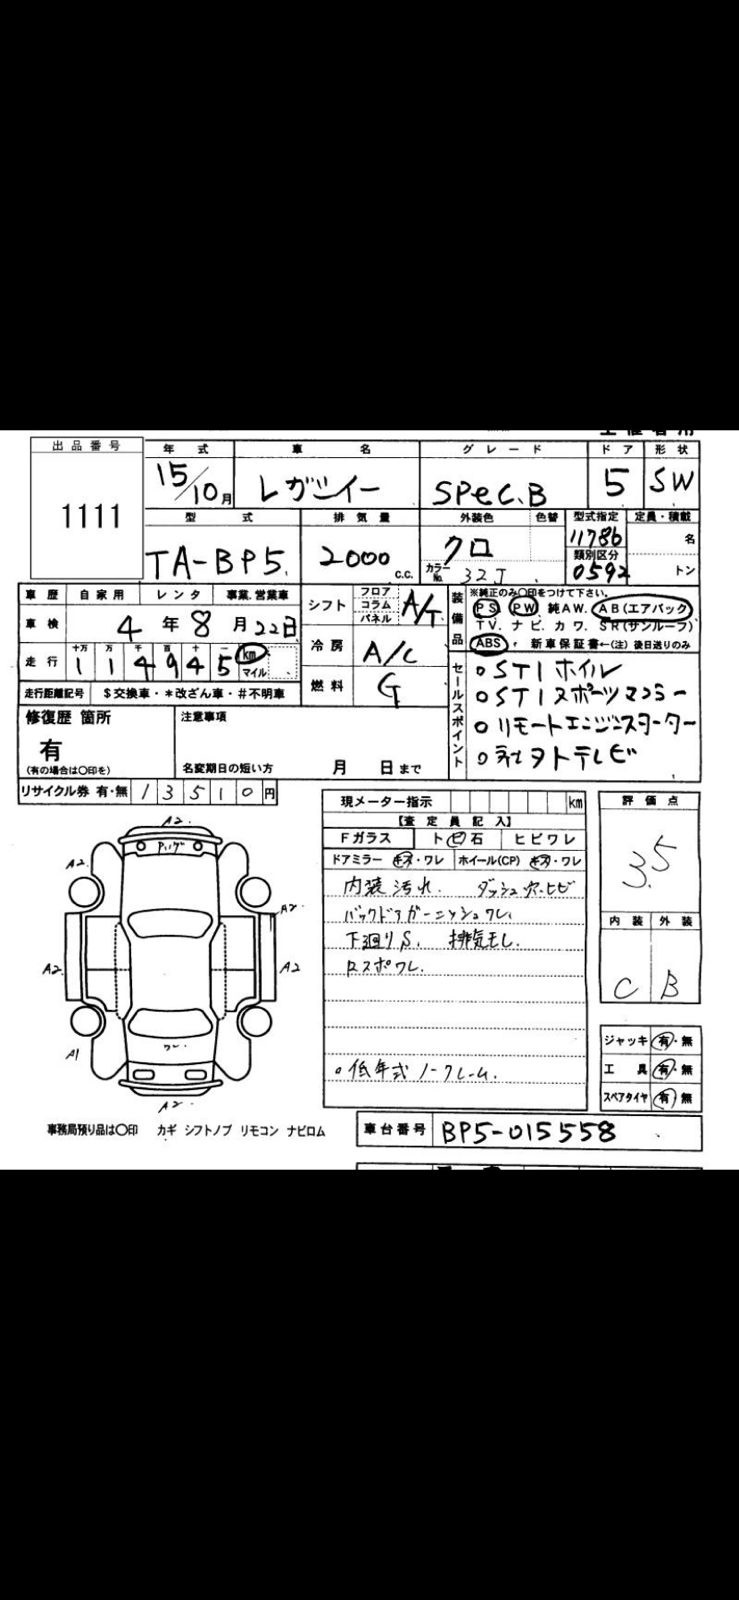 出品番号
1111
年式 車名 グレード ドア 形状
15/10月 レガシィー SPec.B 5 SW
型式 排気量 外装色 色替 型式指定 定員・積載
TA-BP5. 2000 c.c. クロ カラーNo. 32J 11786 名
類別区分 0592 トン
車歴 自家用 レンタ 事業.営業車
車検 4年8月22日
走行 十万 万 千 百 十 一 km マイル
114945
走行距離記号 $交換車・*改ざん車・#不明車
シフト フロア コラム パネル A/T
冷房 A/C
燃料 G
装備品 ※純正のみ〇印をつけて下さい。
PS PW 純AW. AB(エアバック)
TV. ナビ. カワ. SR(サンルーフ)
ABS 新車保証書←(注)後日送りのみ
セールスポイント
○STIホイル
○STIスポーツマフラー
○リモートエンジンスターター
○社外テレビ
修復歴 箇所
有
(有の場合は〇印を)
注意事項
名変期日の短い方 月 日まで
リサイクル券 有・無 13510円
現メーター指示 km
【査定員記入】
Fガラス ト ビ 石 ヒビワレ
ドアミラー キズ・ワレ ホイール(CP) キズ・ワレ
内装汚れ. ダッシュ穴.ヒビ
バックドアガーニッシュワレ.
下廻りS. 排気モレ.
Rスポワレ.
○低年式ノークレーム.
評価点
3.5
内装 外装
C B
ジャッキ 有・無
工具 有・無
スペアタイヤ 有・無
A2.
A2.
A2.
A2.
A2
A1
ワレ.
A2.
事務局預り品は〇印 カギ シフトノブ リモコン ナビロム
車台番号 BP5-015558